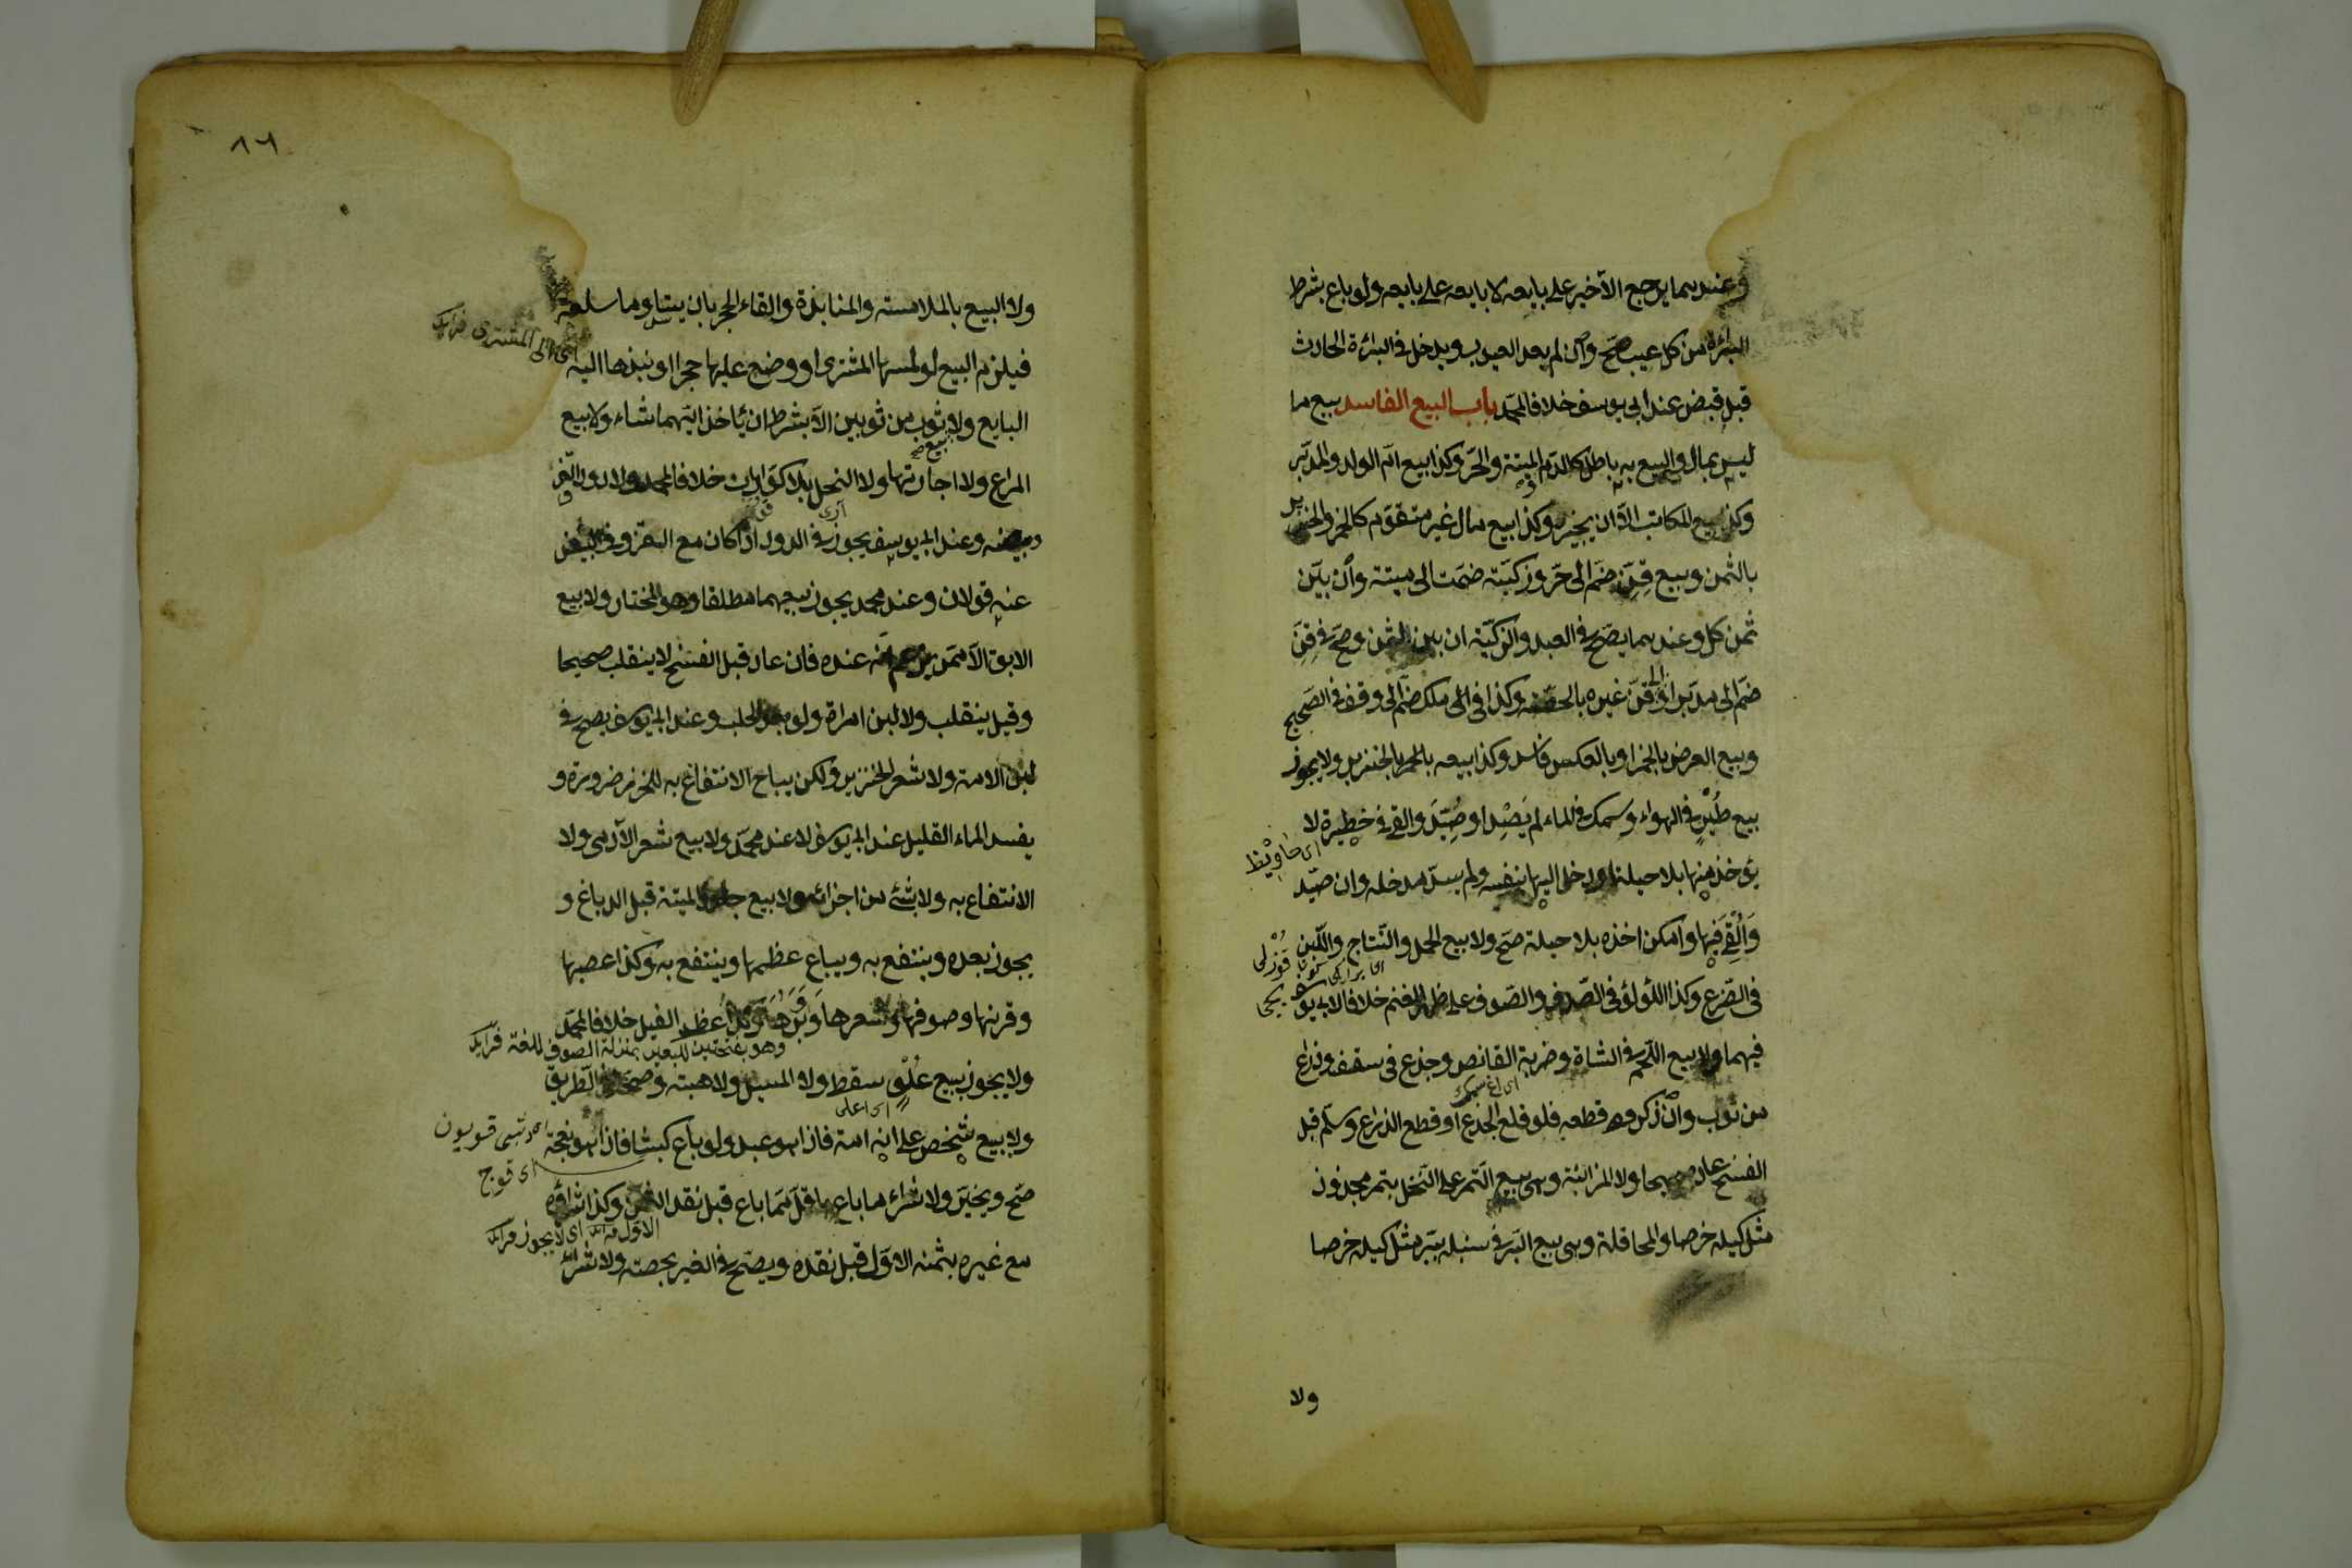 وعندهما يرجع الأخير على بايعه لا بايعه على بايعه ولو باع بشرط
البرائة من كل عيب صحّ وان لم يعد العيوب ويدخل في البرائة الحادث
قبل قبض عند ابى يوسف خلافا لمحمّد باب البيع الفاسد بيع ما
ليس بمال والبيع به باطل كالدم والميتة والحرّ وكذا بيع امّ الولد والمدبّر
وكذا بيع المكاتب الّا ان يجيزه وكذا بيع مال غير متقوّم كالخمر والخنزير
بالثمن وبيع قِنّ ضمّ الى حرّ وزكيّة ضمّت الى ميتة وان بيّن
ثمن كل وعندهما يصحّ في العبد والزكيّة ان بين الثمن وصحّ في قِنّ
ضمّ الى مدبّر او الى قنّ غيره بالحصّة وكذا فى ملك ضمّ الى وقف في الصّحيح
وبيع العرض بالخمر او بالعكس فاسد وكذا بيعه بالخمر بالخنزير ولا يجوز
بيع طَيْرٍ في الهواء وسمك في الماء لم يُصَدْ او صِيدَ والقى في حظيرة لا
يؤخذ منها بلا حيلة او دخل اليها بنفسه ولم يسدّ مدخله وان صيد
وَأُلْقِىَ فيها وامكن اخذه بلا حيلة صحّ ولا بيع الحمل والنّتاج واللّبن
فى الضّرع وكذا اللّؤلؤ فى الصّدف والصّوف على ظهر الغنم خلافا لابى يوسف
فيهما ولا بيع اللّحم في الشاة وضربة القانص وجذع فى سقف وذراع
من ثوب وان ذكر قطعه فلو قلع الجذع او قطع الذراع وسلّم قبل
الفسخ عاد صحيحا ولا المزابنة وهى بيع التّمر على النّخل بتمر مجذوذ
مثل كيله خرصا والمحاقلة وهى بيع البرّ في سنبله ببرّ مثل كيله خرصا
ولا
٨٦
ولا البيع بالملامسة والمنابذة والقاء الحجر بان يتساوما سلعة
فيلزم البيع لو لمسها المشترى او وضع عليها حجرا او نبذها اليه
اى الى المشترى فرائد
البايع ولا ثوب من ثوبين الّا بشرط ان يأخذ ايّهما شاء ولا بيع
المراعى ولا اجارتها ولا النحل بلا كوارات خلافا لمحمد ولا دود القزّ
وبيضه وعند ابى يوسف يجوز في الدود اذا كان مع القزّ وفى البيض
عنه قولان وعند محمد يجوز بيعهما مطلقا وهو المختار ولا بيع
الابق الّا ممّن يزعم انه عنده فان عاد قبل الفسخ لا ينقلب صحيحا
وقيل ينقلب ولا لبن امراة ولو بعد الحلب وعند ابى يوسف يصح في
لبن الامة ولا شعر الخنزير ولكن يباح الانتفاع به للخرز ضرورة و
يفسد الماء القليل عند ابى يوسف لا عند محمّد ولا بيع شعر الآدمى ولا
الانتفاع به ولا بشئ من اجزائه ولا بيع جلود الميتة قبل الدباغ و
يجوز بعده وينتفع به ويباع عظمها وينتفع به وكذا عصبها
وقرنها وصوفها وشعرها وَوَبَرها وكذا عظم الفيل خلافا لمحمّد
وهو بفتحتين للبعير بمنزلة الصوف للغنم فرائد
ولا يجوز بيع عُلْوٍ سقط ولا المسيل ولا هبته وصحّا في الطريق
اى اعلى
ولا بيع شخص على انه امة فاذا هو عبد ولو باع كبشا فاذا هو نعجة
اى قوج
صحّ ويخيّر ولا شراء ما باع باقلّ ممّا باع قبل نقد الثمن وكذا شراؤه
مع غيره بثمنه الاوّل قبل نقده ويصحّ في الغير بحصته ولا شراء